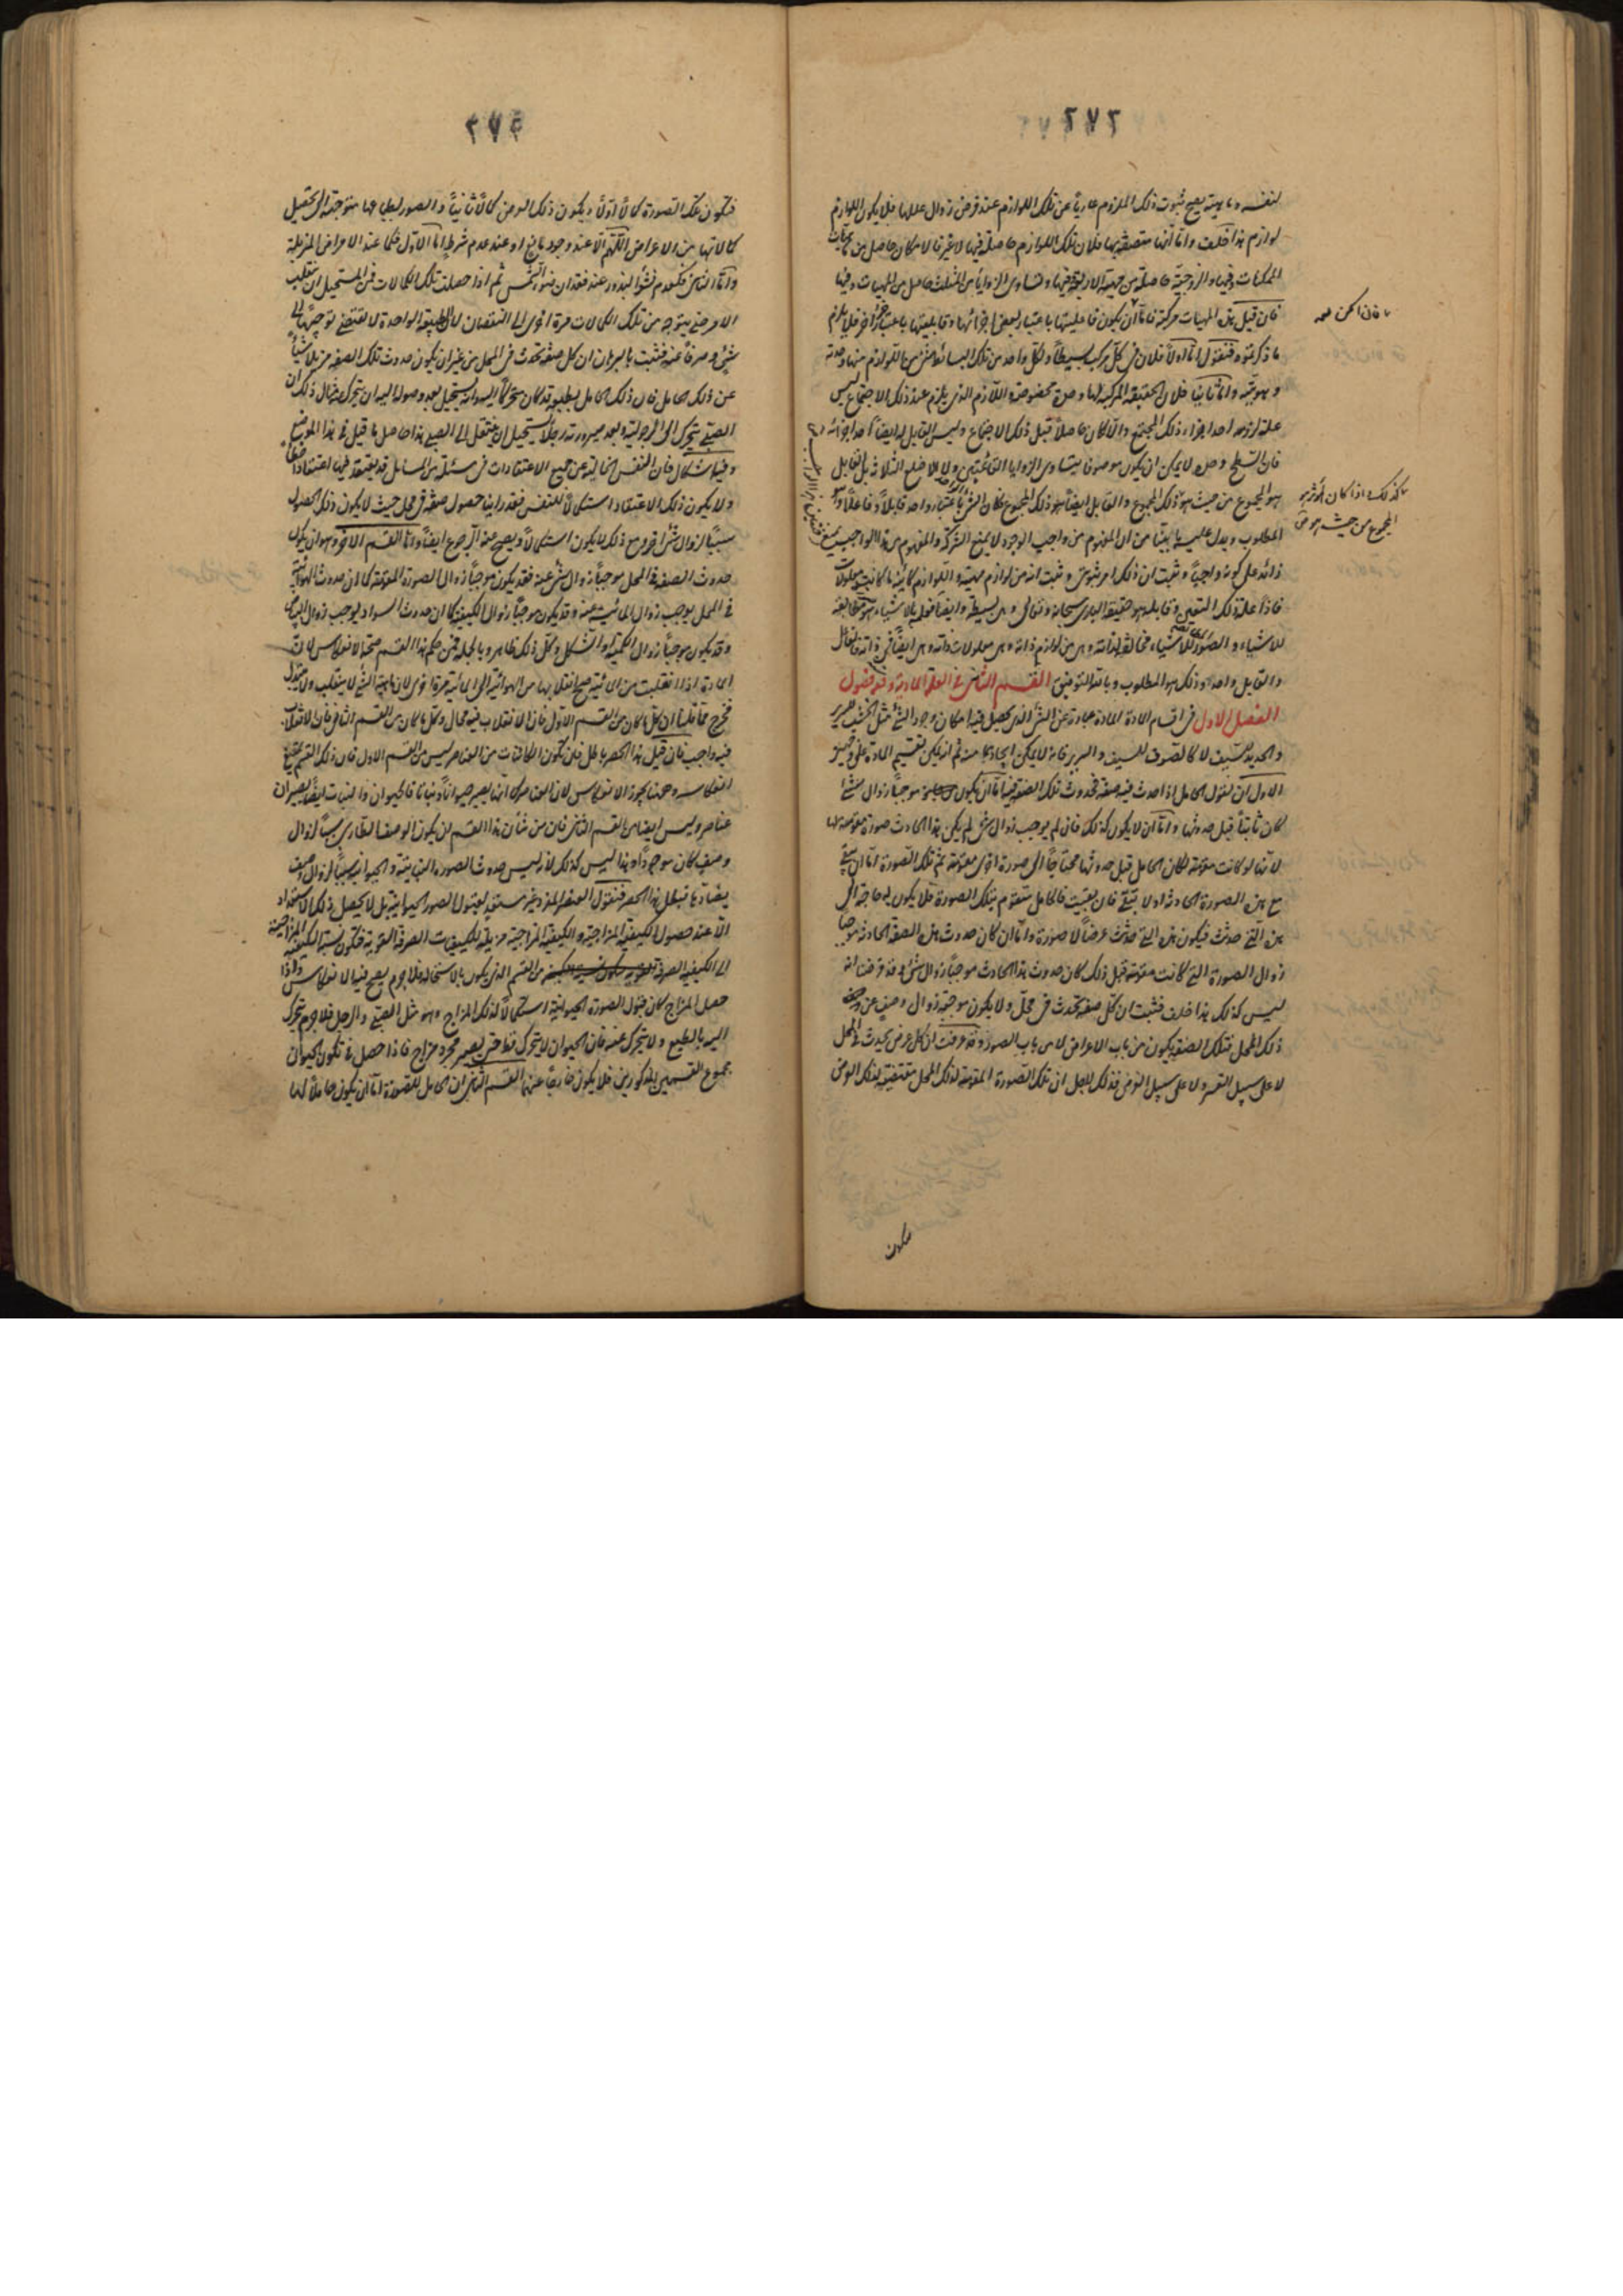 ٢٧٢
لنفسه وماهيته يصح ثبوت ذلك الملزوم عارياً عن تلك اللوازم عند فرض زوال عللها فلا يكون اللوازم
لوازم هذا خلف واما انها متصفة بها فلان تلك اللوازم حاصلة فيها لا غير فالامكان حاصل من
الممكنات وفيها والزوجية حاصلة من جهة الاربعة وفيها وتساوى الزوايا من المثلث حاصل من المهيات وفيها
فان قيل هذه المهيات مركبة فاما ان يكون فاعليتها باعتبار بعض اجزائها وقابليتها باعتبار جزء اخر فلا يلزم
ما ذكرتموه فنقول اما اولاً فلان فى كل مركب بسيطاً ولكل واحد من تلك البسائط شئ من اللوازم منها وحدته
وهويته واما ثانيا فلان الحقيقة المركبة لها وحدة مخصوصة واللازم الذى يلزم عند ذلك الاجتماع ليس
علة لزومه احد اجزاء ذلك المجتمع والا لكان حاصلاً قبل ذلك الاجتماع وليس القابل له ايضاً احد اجزائه
فان السطح وحده لا يمكن ان يكون موصوفا بتساوى الزوايا القائمتين ولا الاضلاع الثلاثة بل القابل
هو المجموع من حيث هو ذلك المجموع والفاعل ايضاً هو ذلك المجموع فكان الشئ باعتبار واحد قابلاً وفاعلاً وهو
المطلوب ويدل عليه ما بينا من ان المفهوم من واجب الوجود لا يمنع الشركة والمفهوم من هذا الواجب يمنع
زائد على كونه واجباً وثبت ان ذلك امر ثبوتى وثبت انه من لوازم مهيته واللوازم كائنة ما كانت معلولات
فاذا علة ذلك التعين وقابله هو حقيقة البارى سبحانه وتعالى وهى بسيطة وايضا فعلمه بالاشياء صورة مطابقة
للاشياء والصورة للاشياء مخالفة لذاته وهى من لوازم ذاته وهى معلولات ذاته وهى ايضاً فى ذاته فالفاعل
والقابل واحد وذلك هو المطلوب وبالله التوفيق القسم الثانى فى العلة المادية وفيه فصول
الفصل الاول فى اقسام المادة المادة عبارة عن الشئ الذى يحصل فيه امكان وجود الشئ مثل الخشب للسرير
والحديد للسيف لا كالصوف للسيف والسرير فانه لا يمكن ايجادهما منه ثم انه يمكن تقسيم المادة على وجهين
الاول ان نقول الحامل اذا حدث فيه صفة فحدوث تلك الصفة فيه اما ان يكون موجباً زوال شئ
كان ثابتاً قبل حدوثها واما ان لا يكون كذلك فان لم يوجب زوال شئ لم يكن هذا الحادث صورة مقومة لها
لانها لو كانت مقومة لكان الحامل قبل حدوثها محتاجاً الى صورة اخرى مقومة ثم تلك الصورة اما ان تبقى
مع هذه الصورة الحادثة او لا تبقى فان بقيت فالحامل متقوم بتلك الصورة فلا يكون له حاجة الى
هذه التى حدثت فيكون هذه التى حدثت عرضاً لا صورة واما ان كان حدوث هذه الصفة الحادثة موجبا
زوال الصورة التى كانت مقومة قبل ذلك كان حدوث هذا الحادث موجباً زوال شئ وقد فرضنا انه
ليس كذلك هذا خلف فثبت ان كل صفة تحدث فى محل ولا يكون موجبة زوال وصف عن
ذلك المحل فتلك الصفة يكون من باب الاعراض لا من باب الصور وقد عرفت ان كل عرض يحدث فى المحل
لا على سبيل القسر ولا على سبيل العرض فذلك لاجل ان تلك الصورة المقومة لذلك المحل مقتضية لذلك العرض
كذلك اذا كان المؤثر هو
المجموع من حيث هو
فتكون
٢٧٣
فتكون تلك الصورة كمالاً اولاً ويكون ذلك العرض كمالاً ثانياً والصور بطباعها متوجهة الى تحصيل
كمالاتها من الاعراض اللهم الا عند وجود مانع او عند عدم شرط اما الاول فكما عند الاعراض المزيلة
واما الثانى فكعدم نشو البذور عند فقدان ضوء الشمس ثم اذا حصلت تلك الكمالات فمن المستحيل ان ينقلب
الامر حتى يتوجه من تلك الكمالات مرة اخرى الى النقصان لان الطبيعة الواحدة لا تقتضى توجهاً الى
شئ وصرفاً عنه فثبت بالبرهان ان كل صفة تحدث فى المحل من غير ان يكون حدوث تلك الصفة مزيلا شيئاً
عن ذلك الحامل فان ذلك الحامل بطبعه قد كان متحركاً اليه وانه يستحيل بعد وصوله اليه ان يتحرك مثال ذلك ان
الصبى يتحرك الى الرجولية وبعد صيرورته رجلاً يستحيل ان ينتقل الى الصبى هذا حاصل ما قيل فى هذا الموضع
وفيه اشكال فان النفس الخالية عن جميع الاعتقادات فى مسئلة من المسائل قد يعتقد فيها اعتقاداً خطأ
ولا يكون ذلك الاعتقاد استكمالاً للنفس فقد راينا حصول صفة فى محل حيث لا يكون ذلك الحصول
سبباً لزوال شئ اخر ومع ذلك لا يكون استكمالاً ويصح عنه الرجوع ايضاً واما القسم الاخر وهو ان يكون
حدوث الصفة فى المحل موجباً زوال شئ عنه فقد يكون موجباً زوال الصورة المقومة كما ان حدوث الهوائية
فى المحل يوجب زوال المائية عنه وقد يكون موجباً زوال الكيفية كما ان حدوث السواد يوجب زوال البياض
وقد يكون موجباً زوال الكمية او الشكل وكل ذلك ظاهر وبالجملة فمن حكم هذا القسم صحة الانعكاس لان
المادة اذا انقلبت من المائية صح انقلابها من الهوائية الى المائية مرة اخرى لان ماهية الشئ لا ينقلب ولا يتبدل
فخرج مما قلنا ان كل ما كان من القسم الاول فان الانقلاب فيه محال وكل ما كان من القسم الثانى فان الانقلاب
فيه واجب فان قيل هذا الحصر باطل فان تكون الكائنات من العناصر ليس من القسم الاول فان ذلك القسم يمتنع
انعكاسه وههنا يجوز الانعكاس لان العناصر كما انها يصير حيواناً ونباتا فالحيوان والنبات ايضاً يصيران
عناصر وليس ايضا من القسم الثانى فان من شأن هذا القسم ان يكون الوصف الطارى سبباً لزوال
وصف كان موجوداً وهذا ليس كذلك لانه ليس حدوث الصورة النباتية والحيوانية سبباً لزوال وصف
يضادها فبطل هذا الحصر فنقول العنصر المفرد غير مستعد لقبول الصور الحيوانية بل لا يحصل ذلك الاستعداد
الا عند حصول الكيفية المزاجية والكيفية المزاجية مزيلة للكيفيات الصرفة القوية فتكون نسبة الكيفية المزاجية
الى الكيفية الصرفة من القسم الذى يكون بالاستحالة فلا جرم يصح فيه الانعكاس واذا
حصل المزاج كان قبول الصورة الحيوانية استكمالاً لذلك المزاج وهو مثل الصبى والرجل فلا جرم يتحرك
اليه بالطبع ولا يتحرك عنه فان الحيوان لا يتحرك قط حتى يصير مجرد مزاج فاذا حصل فى تكون الحيوان
مجموع القسمين المذكورين فلا يكون خارجاً عنهما القسم الثانى ان الحامل للصورة اما ان يكون حاملاً لها